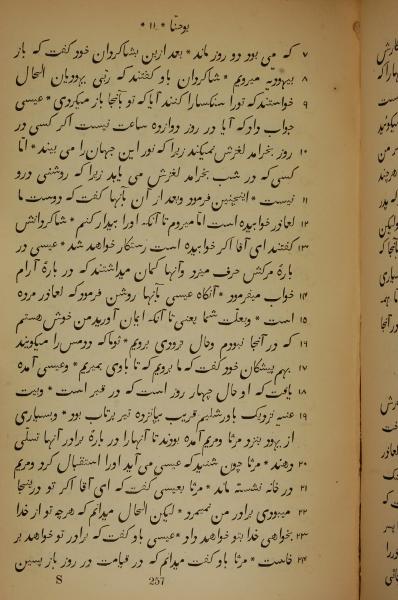 یوحنّا * ۱۱ *
۷ که می بود دو روز ماند * بعد ازین بشاگردان خود گفت که باز
۸ بیهودیّه میرویم * شاگردان باو گفتند که ربّی یهودیان الحال
۹ خواستند که تورا سنکسار کنند آیا که تو بآنجا باز میکردی * عیسی
جواب داد که آیا در روز دوازده ساعت نیست اگر کسی در
۱۰ روز بخرامد لغزش نمیکند زیرا که نور این جهان را می بیند * امّا
کسی که در شب بخرامد لغزش می یابد زیرا که روشنی درو
۱۱ نیست * اینچنین فرمود وبعد از آن بآنها گفت که دوست ما
۱۲ لعاذر خوابیده است امّا میروم تا آنکه اورا بیدار کنم * شاکردانش
۱۳ گفتند ای آقا اگر خوابیده است رستگار خواهد شد * عیسی در
بارهٔ مرکش حرف میزد وآنها کمان میداشتند که در بارهٔ آرام
۱۴ خواب میفرمود * آنگاه عیسی بآنها روشن فرمود که لعاذر مرده
۱۵ است * وبعلّت شما یعنی تا آنکه ایمان آورید من خوش هستم
۱۶ که در آنجا نبودم وحال نزد وی برویم * ثوما که ددمس را میکویند
۱۷ بهم پیشکان خود گفت که ما برویم که تا باوی بمیریم * وعیسی آمده
۱۸ یافت که او حال چهار روز است که در قبر است * وبیت
۱۹ عنیه نزدیک باورشلیم قریب بپانزده تیر پرتاب بود * وبسیاری
از یهود بنزد مرثا ومریم آمده بودند تا آنها را در بارهٔ برادر آنها تسلّی
۲۰ دهند * مرثا چون شنید که عیسی می آید اورا استقبال کرد ومریم
۲۱ در خانه نشسته ماند * مرثا بعیسی گفت که ای آقا اگر تو در اینجا
۲۲ میبودی برادر من نمیمرد * لیکن الحال میدانم که هرچه تو از خدا
۲۳ بخواهی خدا بتو خواهد داد * عیسی باو گفت که برادر تو خواهد بر
۲۴ خاست * مرثا باو گفت میدانم که در قیامت در روز باز پسین
S 257